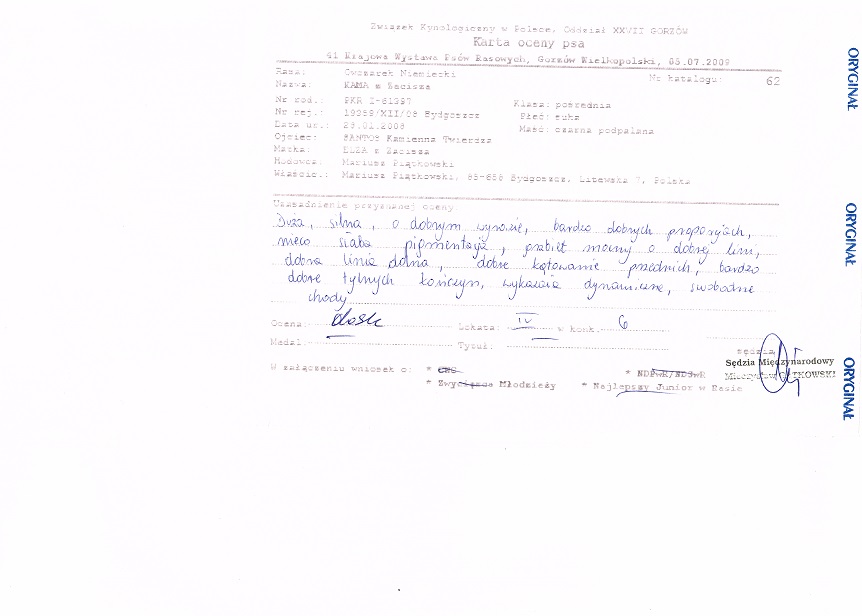 Związek Kynologiczny w Polsce, Oddział XXVII GORZÓW
Karta oceny psa
41 Krajowa Wystawa Psów Rasowych, Gorzów Wielkopolski, 05.07.2009
Rasa: Owczarek Niemiecki
Nr katalogu: 62
Nazwa: KAMA z Zacisza
Nr rod.: PKR I-61397
Klasa: pośrednia
Nr rej.: 19259/XII/08 Bydgoszcz
Płeć: suka
Data ur.: 29.01.2008
Maść: czarna podpalana
Ojciec: SANTOS Kamienna Twierdza
Matka: ELZA z Zacisza
Hodowca: Mariusz Piątkowski
Właśc.: Mariusz Piątkowski, 85-658 Bydgoszcz, Litewska 7, Polska
Uzasadnienie przyznanej oceny:
Duża, silna, o dobrym wyrazie, bardzo dobrych proporcjach,
nieco słaba pigmentacja, grzbiet mocny o dobrej linii,
dobra linia dolna, dobre kątowanie przednich, bardzo
dobre tylnych kończyn, wykazała dynamiczne, swobodne
chody
Ocena: dosk
Lokata: IV w konk. 6
Medal: Tytuł:
sędzia
Sędzia Międzynarodowy
W załączeniu wniosek o: * CWC * NDPwR/NDSwR
* Zwycięzca Młodzieży * Najlepszy Junior w Rasie
ORYGINAŁ
ORYGINAŁ
ORYGINAŁ